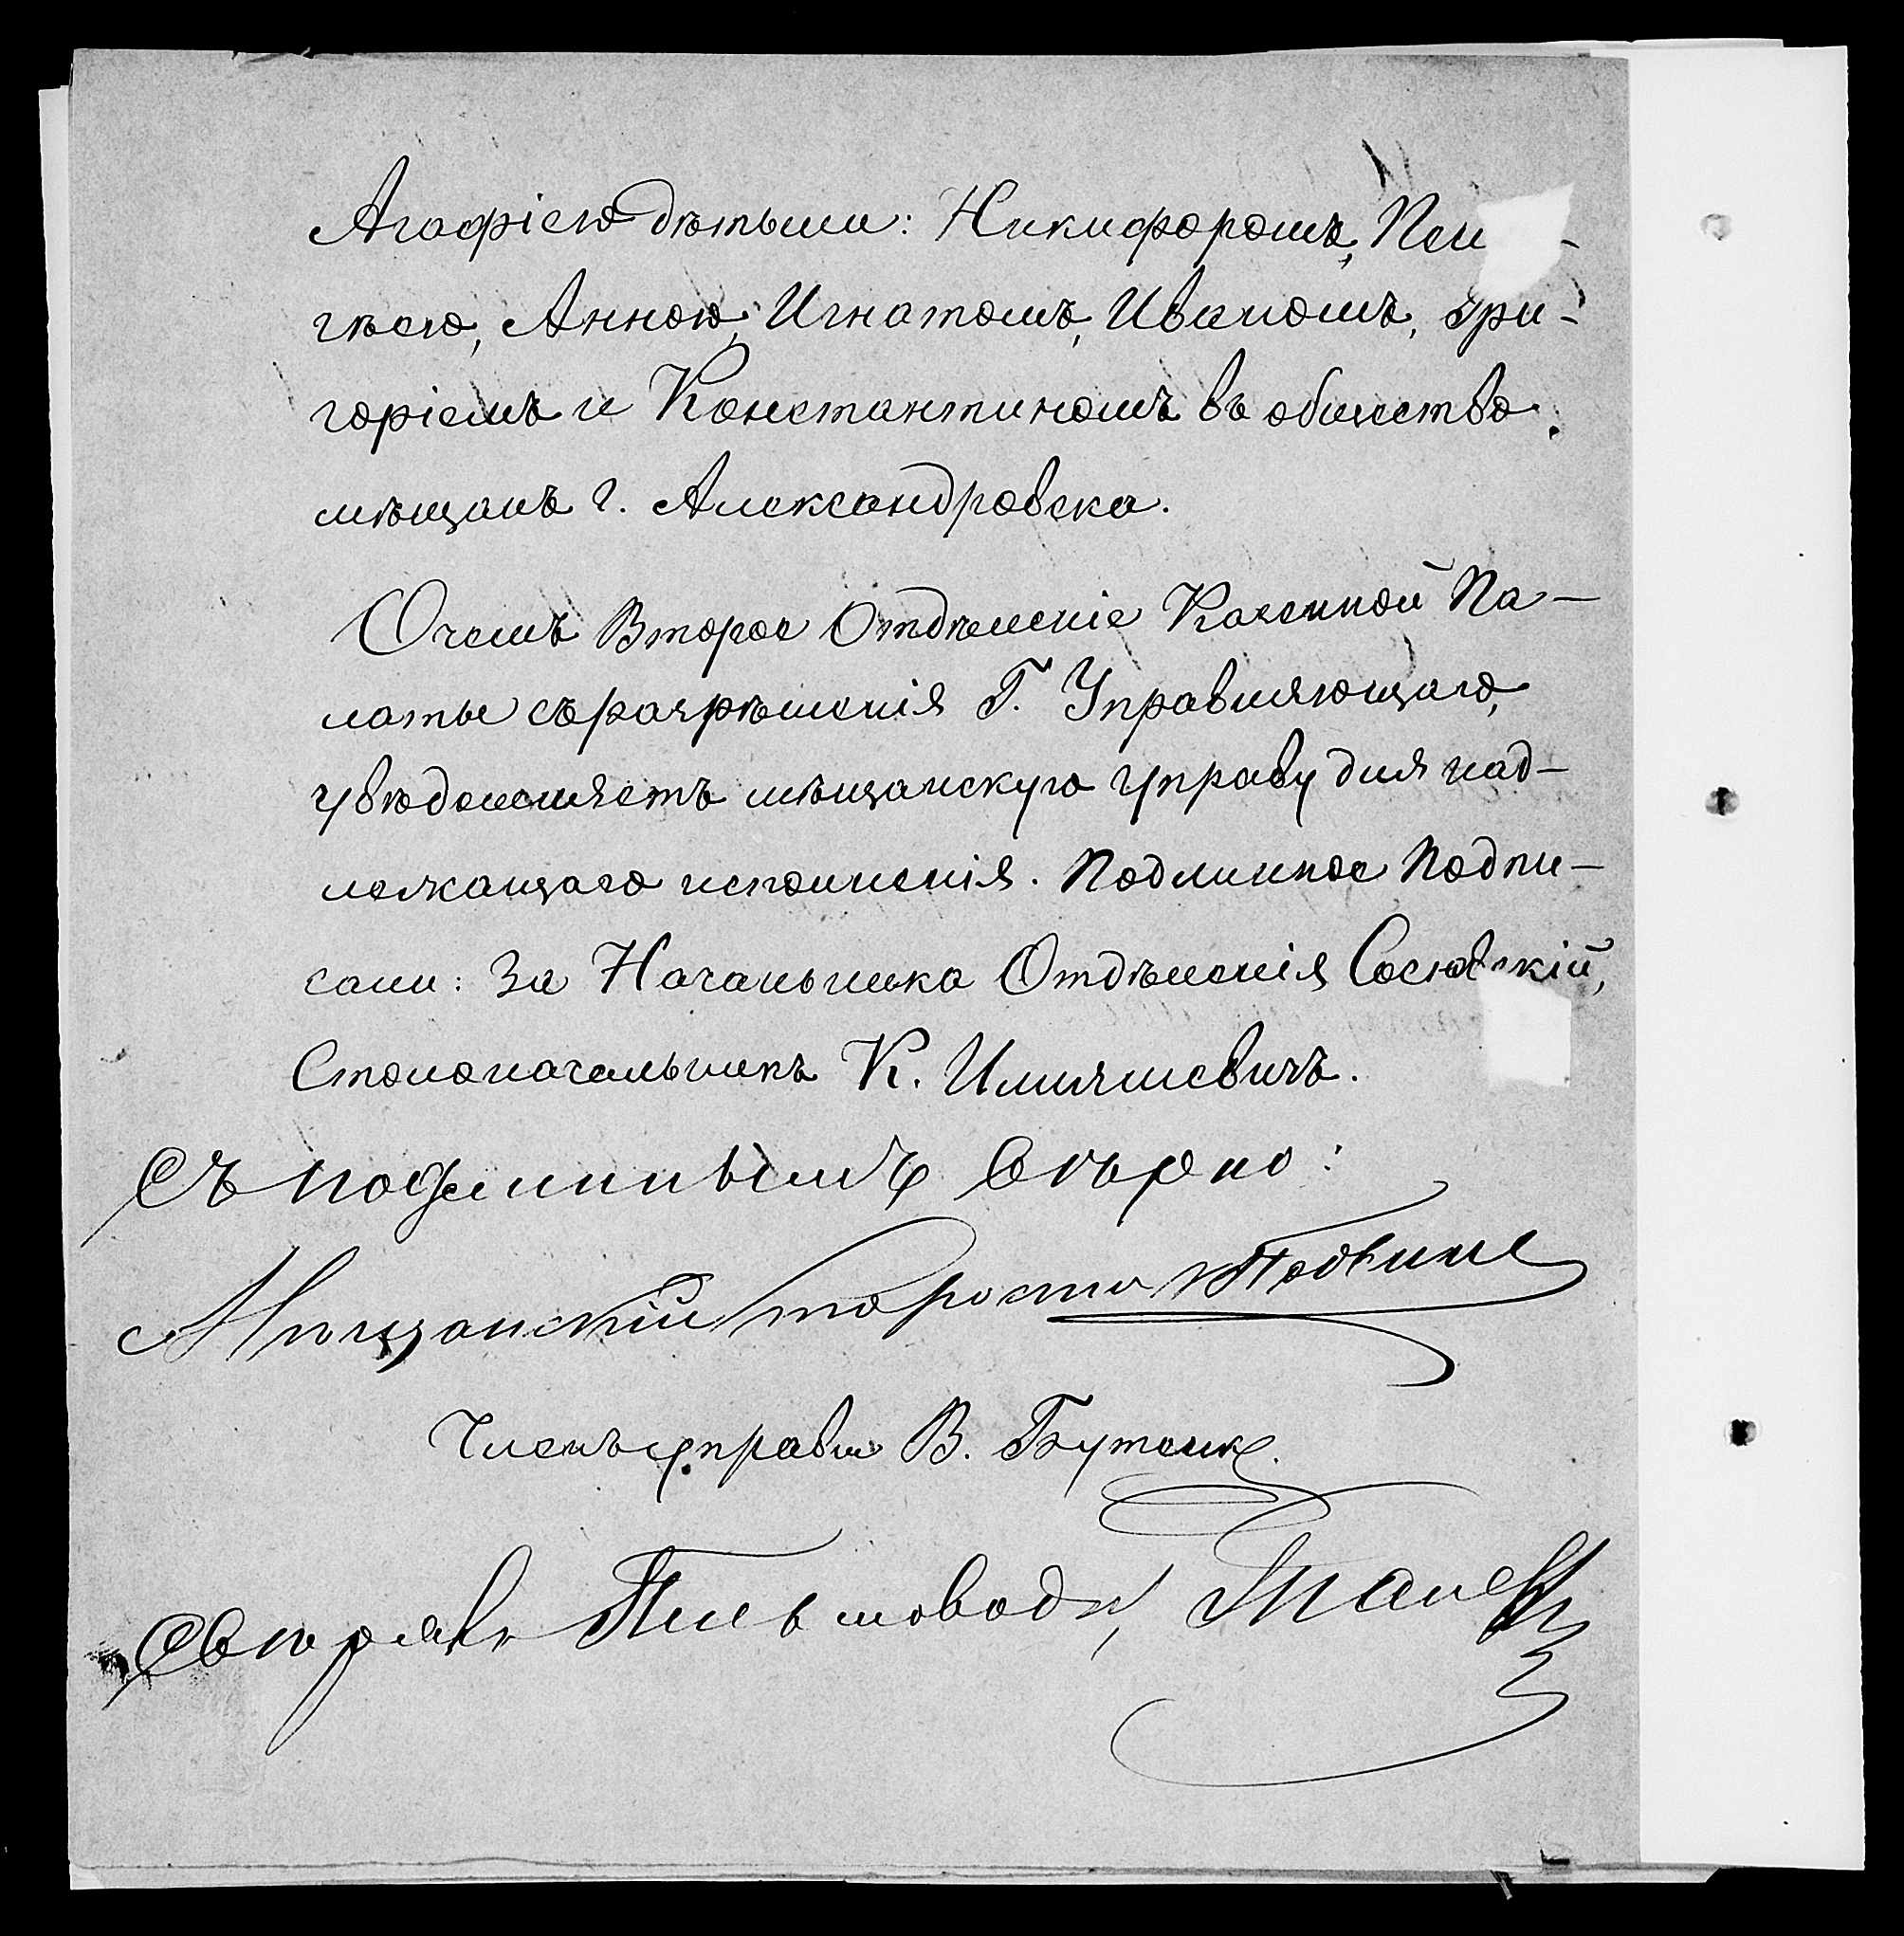 Агафіею дѣтьми: Никифоромъ, Пела-
гѣею, Анною, Игнатомъ, Иваномъ, Гри-
горіемъ и Константиномъ въ общество
мѣщанъ г. Александровска.
О чемъ Второе Отдѣленіе Казенной Па-
латы съ разрѣшенія Г. Управляющаго,
увѣдомляетъ мѣщанскую управу для над-
лежащаго исполненія. Подлинное подпи-
сали: За Начальника Отдѣленія
Столоначальникъ К.
Съ подлиннымъ вѣрно:
Мѣщанскій староста
Членъ управы В. Бутенко.
Свѣрялъ Письмоводи,